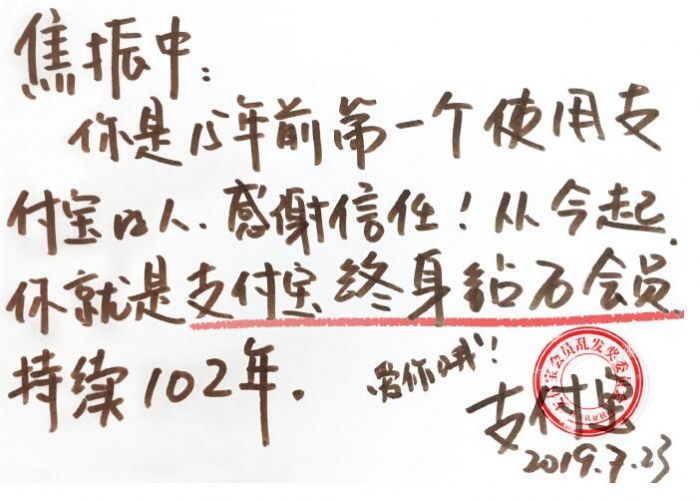 焦振中：
你是15年前第一个使用支
付宝的人.感谢信任!从今起.
你就是支付宝终身钻石会员
持续102年.
爱你哦!
宝会员乱发奖委员会
支付宝
2019.7.23